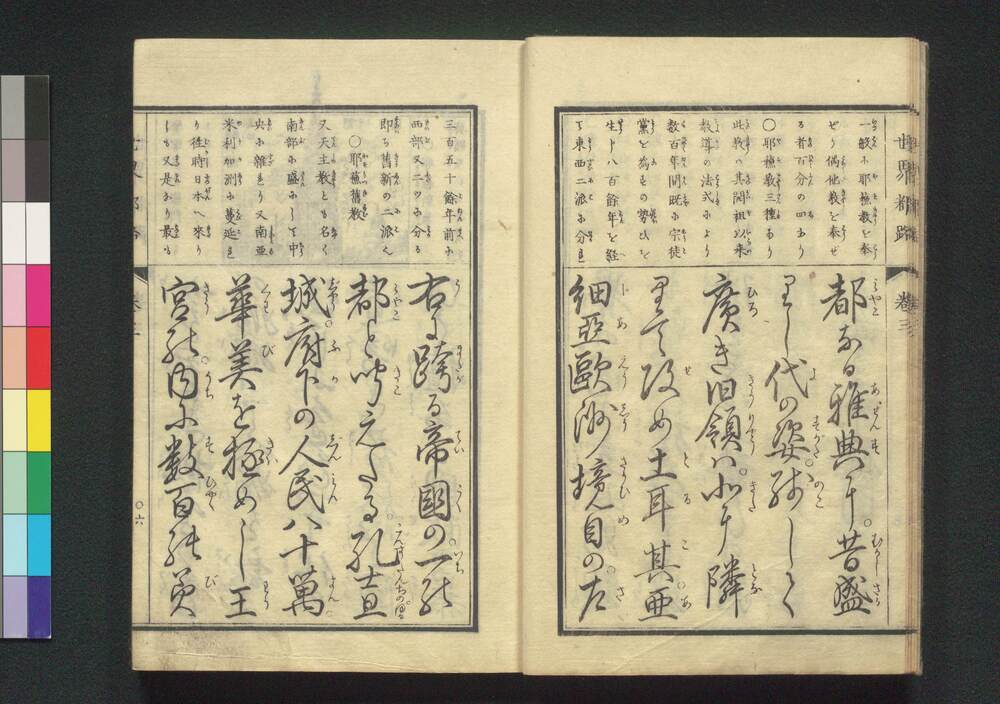 世界都路
巻三
一般に耶穌教を奉
ぜり偶他教を奉ぜ
る者百分の四あり
〇耶穌教三種あり
此教の其開祖以来
教導の法式により
数百年間既に宗徒
黨を為すの勢ひを
生ト八百餘年を経
て東西二派に分る
都なる雅典は昔盛
りし代の姿残しく
廣き旧領は北に隣
りて改め土耳其亜
細亞歐洲境目の左
三百五十餘年前に
西部又二つに分る
即ち舊新の二派也
〇耶穌舊教
又天主教とも名く
南部に盛にして中
央に雜り又南亜
米利加洲に蔓延せ
り徃時日本へ來り
しも又是なり最も
右に跨る帝國の一の
都と聞えたる孔士旦
城府下の人民八十萬
華美を極めし王
宮の内に数百の美
〇六